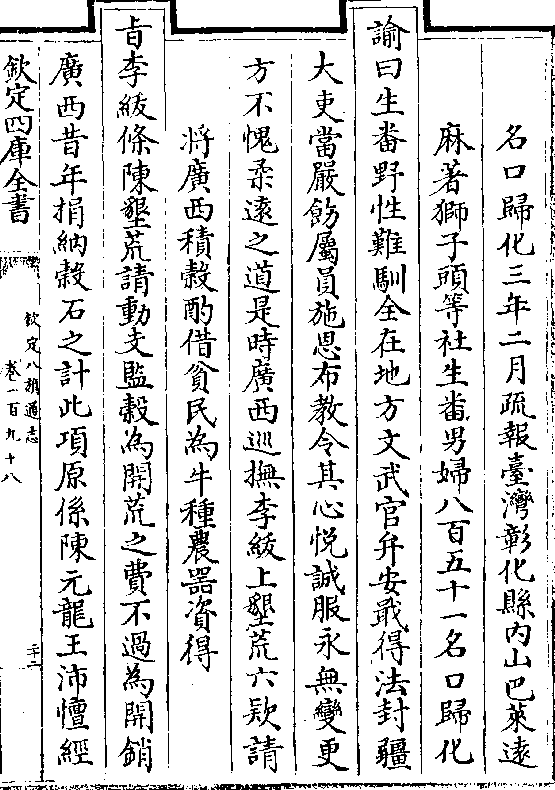 名口歸化三年二月疏報臺灣彰化縣内山巴萊遠
麻著獅子頭等社生畨男婦八百五十一名口歸化
諭曰生畨野性難馴全在地方文武官弁安戢得法封疆
大吏當嚴飭屬員施恩布教令其心悦誠服永無變更
方不愧柔遠之道是時廣西巡撫李紱上墾荒六欵請
將廣西積榖酌借貧民為牛種農器資得
㫖李紱條陳墾荒請動支監榖為開荒之費不過為開銷
廣西昔年捐納榖石之計此項原係陳元龍王沛憻經
欽定四庫全書
欽定八旗通志
卷一百九十八
三十二